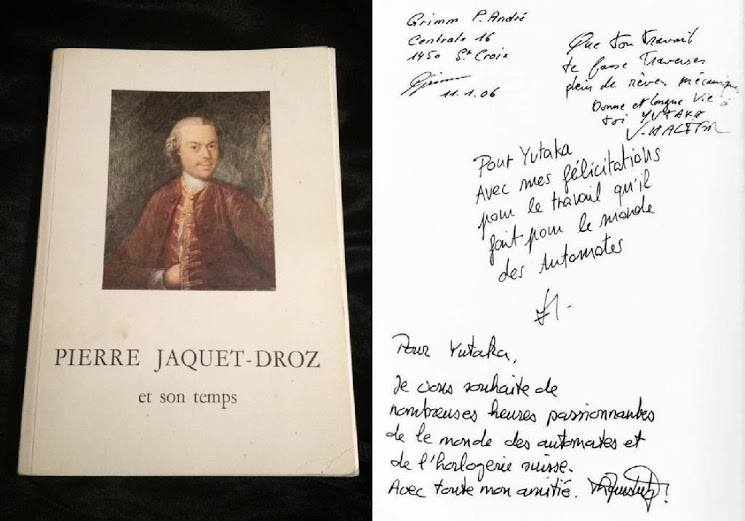 PIERRE JAQUET-DROZ
et son temps
Grimm P. André
Centrale 16
1450 Ste Croix
11.1.06
Que ton travail
te fasse traverser
plein de rêves mécaniques
Bonne et longue vie à
toi YUTAKA
Pour Yutaka
Avec mes félicitations
pour le travail qu'il
fait pour le monde
des Automates
Pour Yutaka,
Je vous souhaite de
nombreuses heures passionnantes
de le monde des automates et
de l'horlogerie suisse.
Avec toute mon amitié.